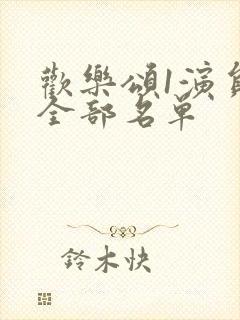 歡樂頌1演員
全部名單
鈴木快